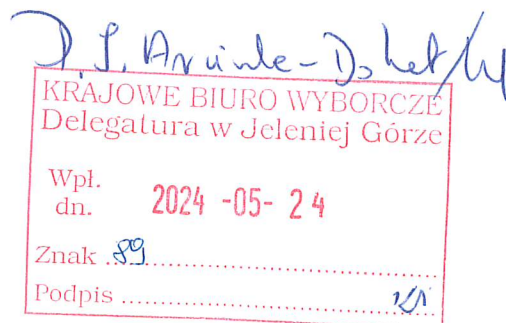 KRAJOWE BIURO WYBORCZE
Delegatura w Jeleniej Górze
Wpł.
dn. 2024 -05- 24
Znak 89
Podpis